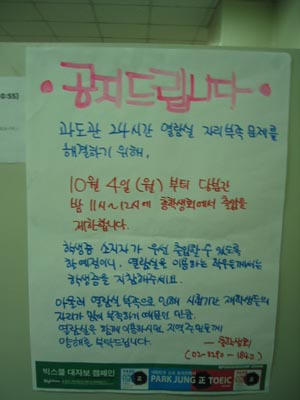 0:55)
공지드립니다
과도관 24시간 열람실 자리부족 문제를
해결하기 위해,
10월 4일 (월) 부터 다음날
밤 11시~12시에 총학생회에서 출입을
제한합니다.
학생증 소지자가 우선 출입할 수 있도록
할 예정이니, 열람실을 이용하는 학우들께서는
학생증을 지참해주세요.
아울러 열람실 부족으로 인해 시험기간 재학생들의
자리가 많이 부족하기 때문인 만큼,
열람실을 함께 이용하시는 지역주민들께
양해를 부탁드립니다.
- 총학생회
빅스물 대자보 캠페인
PARK JUNG 正 TOEIC